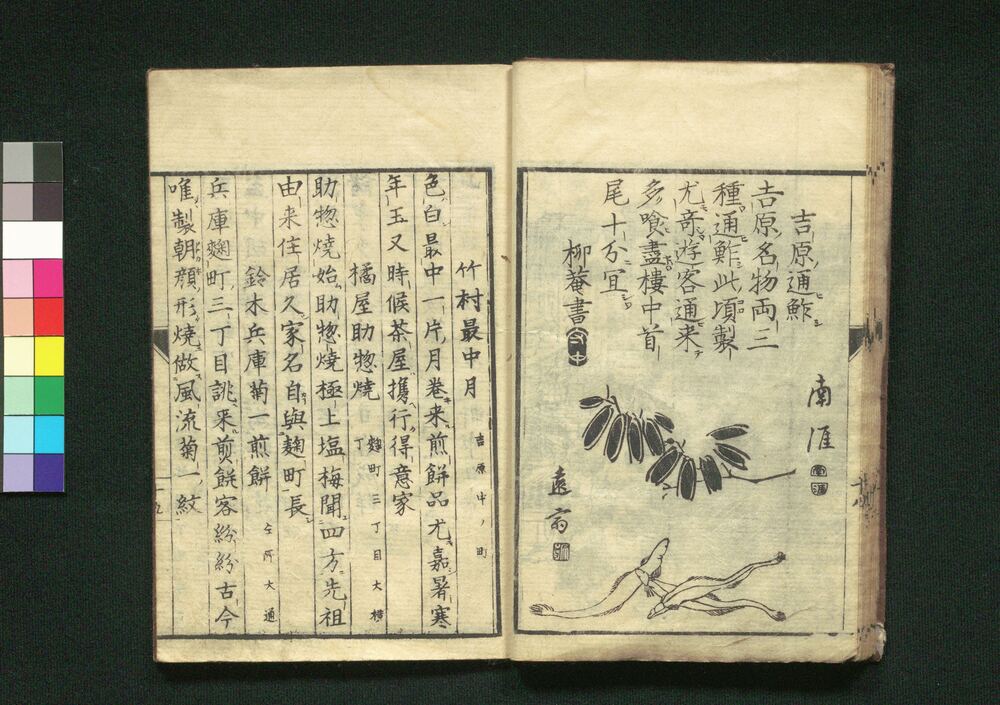 吉原通鮓
吉原名物両三
種通鮓此頃製
尤奇遊客通来
多喰盡樓中首
尾十分宜
柳菴書
南涯
遠
竹村最中月
吉原中ノ町
色白最中一片月巻来煎餅品尤嘉暑寒
年玉又時候茶屋携行得意家
橘屋助惣焼
麹町三丁目大横丁
助惣焼始助惣焼極上塩梅聞四方先祖
由来住居久家名自與麹町長
鈴木兵庫菊一煎餅
仝所大通
兵庫麹町三丁目誂来煎餅客紛紛古今
唯製朝顔形焼做風流菊一紋